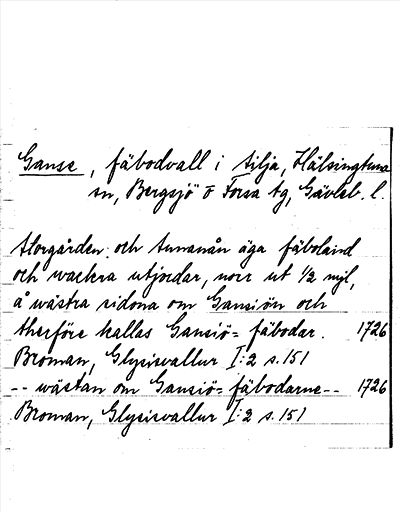 Ganse, fäbodvall i Silja, Hälsingtuna
sn, Bergsjö o Forsa tg, Gävleb. l.
Storgården och Annanån äga fäboland
och wackra utjordar, norr ut 1/2 mjl,
å wästra sidona om Gansiön och
therföre kallas Gansiö= fäbodar. 1726
Broman, Glysisvallur I:2 s. 151
-- wästan om Gansiö= fäbodarne -- 1726
Broman, Glysisvallur I:2 s. 151